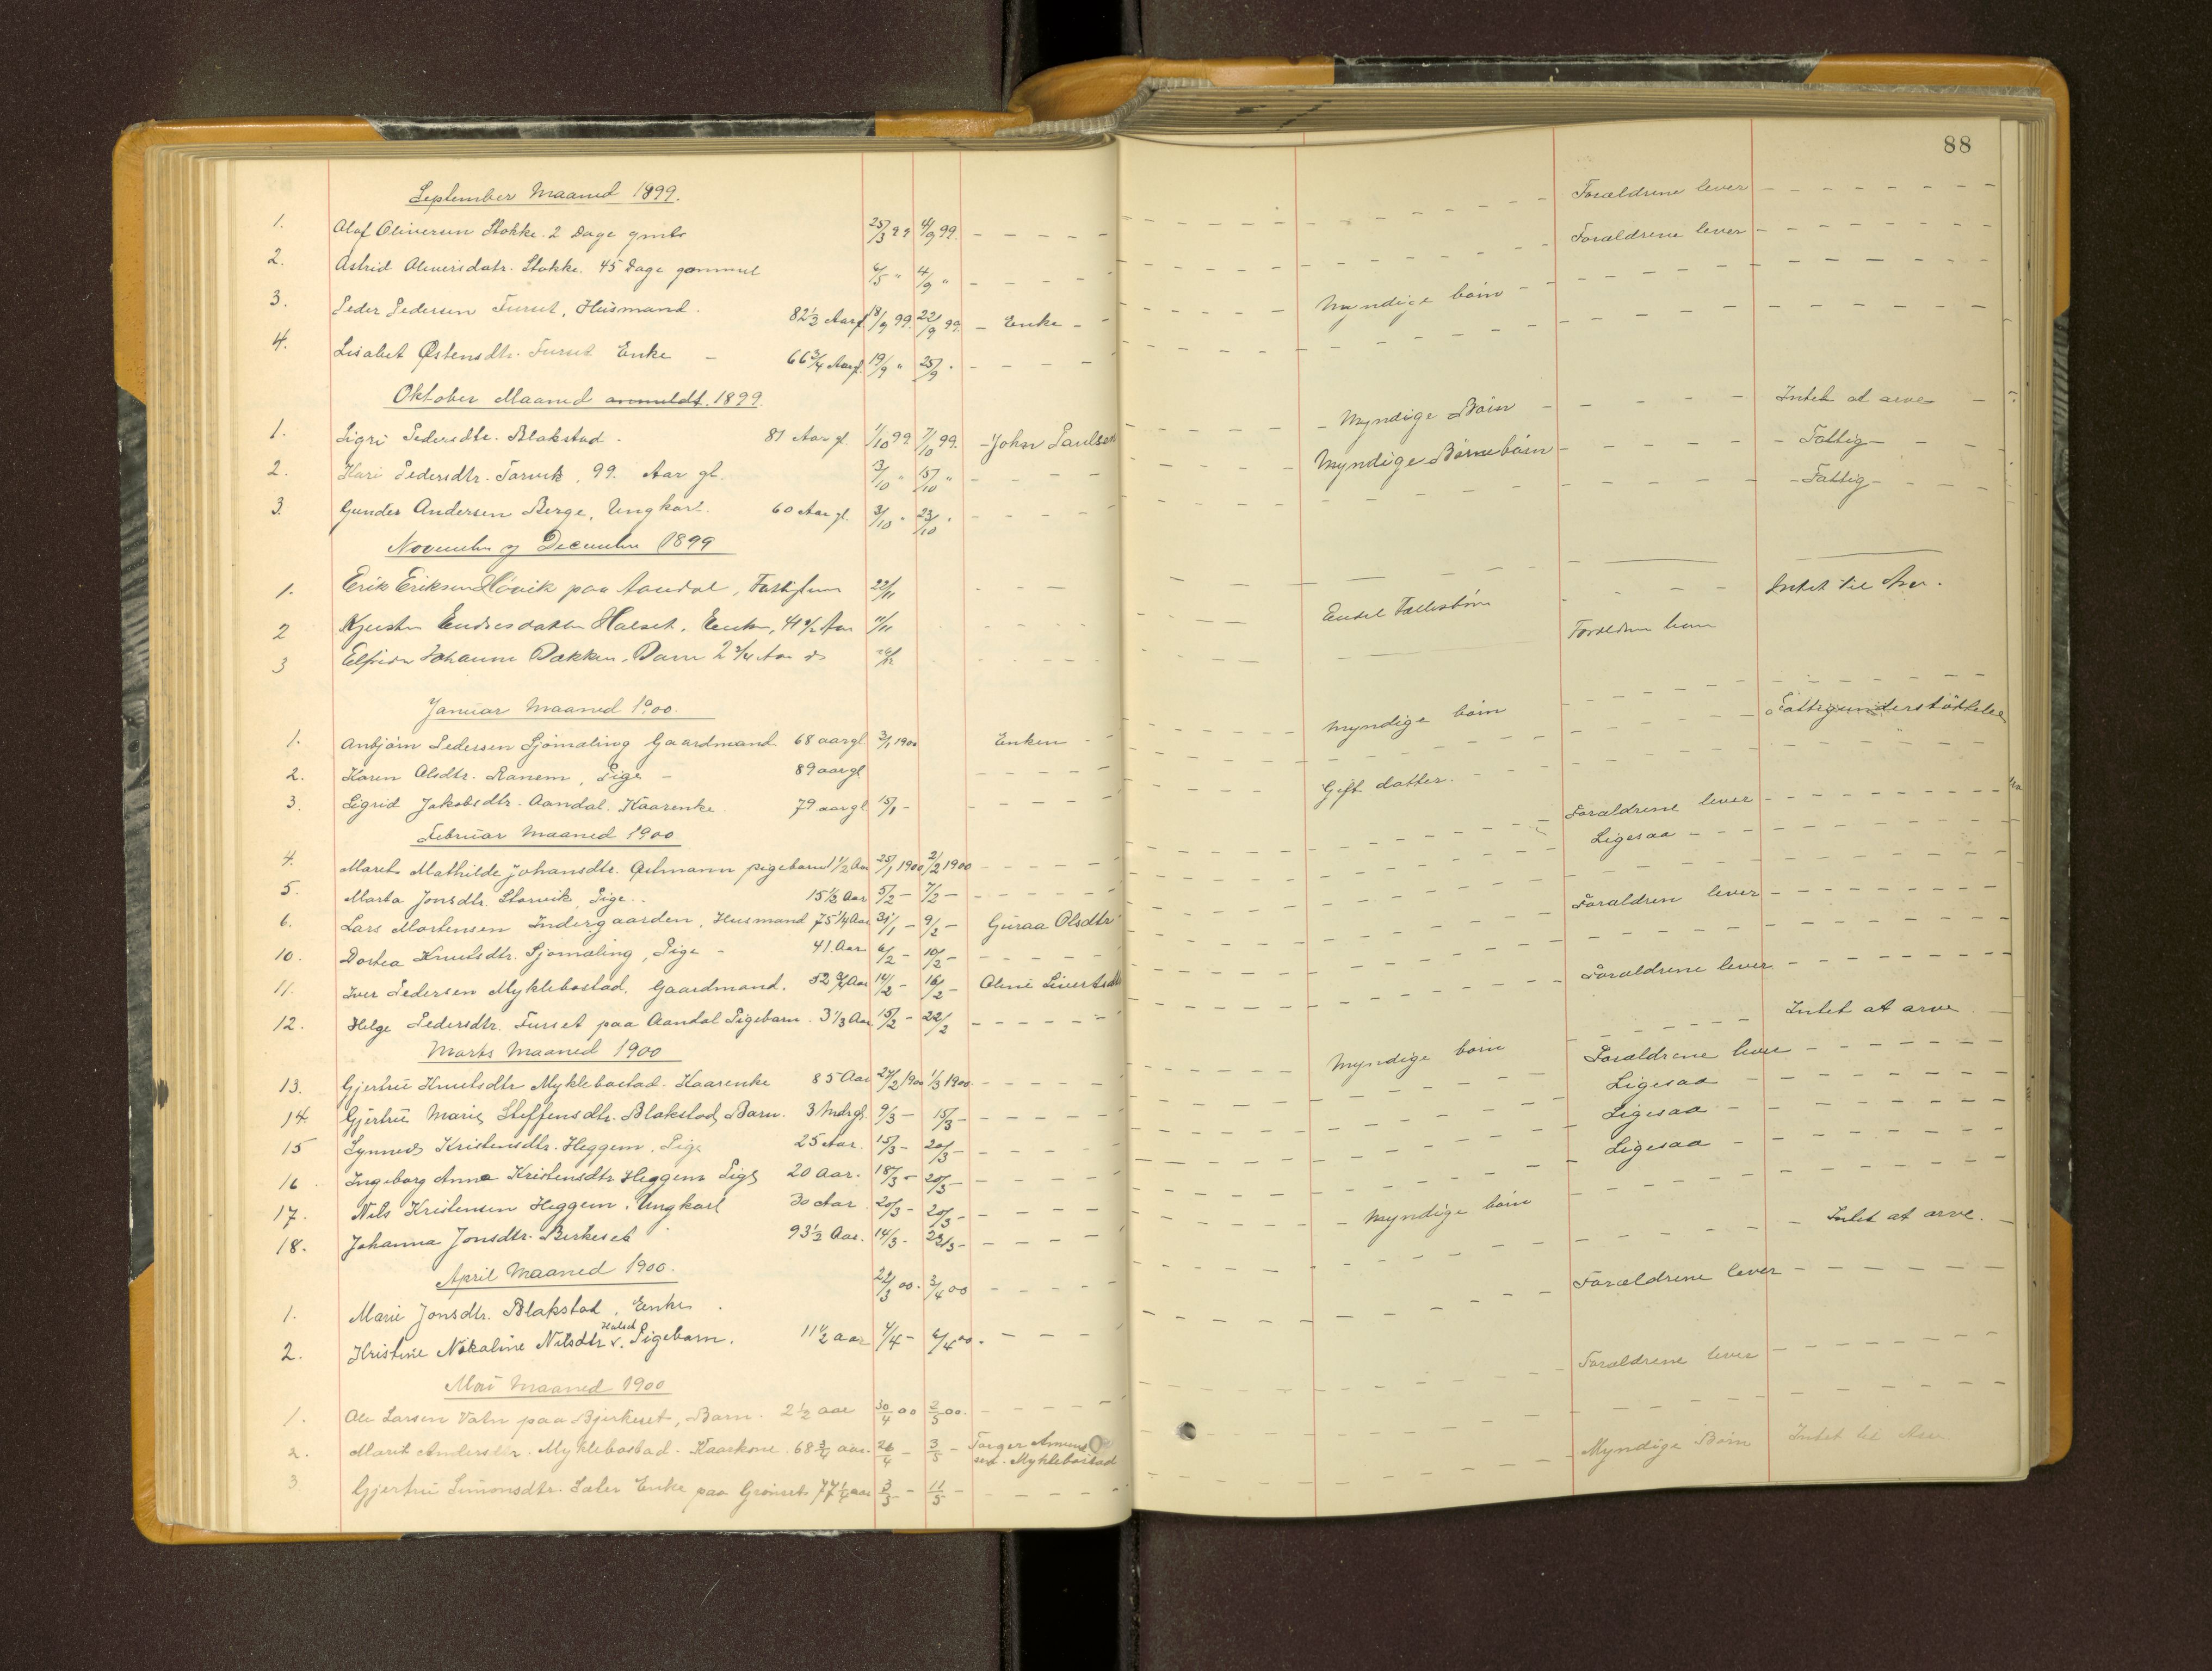 88
September Maaned 1899.
1. Olaf Oliversen Stokke. 2 Dage gmle 25/3 99 4/9 99. Forældrene lever
2. Astrid Oliversdatr. Stokke. 45 Dage gammel 6/5 " 4/9 " Forældrene lever
3. Peder Pedersen Furset, Husmand. 82 1/2 Aar gl. 18/9 99. 22/9 99. - Enke - Myndige børn
4. Lisabet Østensdtr. Furset Enke - 66 3/4 Aar gl. 19/9 " 25/9 "
Oktober Maaned anmeldt. 1899.
1. Sigri Pedersdtr. Blakstad. 81 Aar gl. 1/10 99 7/10 99. - John Paulsen - Myndige Børn - Intet at arve
2. Kari Pedersdtr. Torvik, 99. Aar gl. 3/10 " 15/10 " Myndige Børnebørn - Fattig -
3. Gunder Andersen Berge, Ungkarl. 60 Aar gl. 3/10 " 23/10 " - Fattig -
November og December 1899
1. Erik Eriksen Høvik paa Aandal, 22/11 Intet til Arv.
2 Endresdatter Halset, Enke, 41 1/2 Aar 11/11 Forældren
3 Johanne Bakken, Barn 2 3/4 Aar
Januar Maaned 1900.
1. Anbjørn Pedersen Sjømæling Gaardmand 68 aar gl. 3/1 1900 Enken Myndige børn
2. Karen Olsdtr. Ranem, Pige - 89 aar gl. Fattigunderstøttelse
3. Sigrid Jakobsdtr. Aandal. Kaarenke. 79 aar gl. 15/1 - Gift datter.
Februar Maaned 1900
4. Maret Mathilde Johansdtr. Østmann pigebarn 1 1/2 Aar 25/1 1900 2/2 1900 Forældrene lever
5. Marta Jonsdtr. Storvik, Pige. 15 1/2 Aar 5/2 - 7/2 - Ligesaa
6. Lars Mortensen Indergaarden, Husmand 75 1/4 Aar 31/1 - 9/2 - Guraa Olsdtr
10. Dortea Knutsdtr. Sjømæling, Pige - 41. Aar. 6/2 - 10/2 - Forældren lever
11. Iver Pedersen Myklebostad, Gaardmand. 52 Aar 14/2 - 16/2 - Oline Sivertsdtr
12. Helge Pedersdtr. Furset paa Aandal Pigebarn. 3 1/3 Aar 15/2 - 22/2 Forældrene lever
Marts Maaned 1900
13. Gjertrü Knutsdtr Myklebostad. Kaarenke 85 Aar 24/2 1900 1/3 1900 Myndige børn Intet at arve
14. Gjertrü Marie Steffensdtr. Blakstad, Barn. 3 Mdr gl. 9/3 - 15/3 - Forældrene lever
15 Synnev Kristensdtr. Heggem. Pige 25 Aar. 15/3 - 20/3 - Ligesaa
16. Ingeborg Anna Kristensdtr Heggem Pige 20 Aar. 18/3 - 20/3 - Ligesaa
17. Nils Kristensen Heggem. Ungkarl 30 Aar 20/3 - 20/3 - Ligesaa
18. Johanna Jonsdtr. Birkeset 93 1/2 Aar. 14/3 - 22/3 - Myndige børn
April Maaned 1900.
1. Marie Jonsdtr. Blakstad, Enke. 22/3 00. 3/4 00 Intet at arve.
2. Kristine Nikoline Nilsdtr Halset v. Pigebarn. 11 1/2 aar 4/4 - 6/4 00. Forældrene lever
Mai Maaned 1900
1. Ole Larsen Vatn paa Bjerkeset, Barn. 2 1/2 aar 30/4 00 2/5 00. Forældrene lever
2. Marit Andersdtr. Myklebostad. Kaarkone. 68 3/4 aar. 26/4 - 3/5 - Torger Amund
sen. Myklebostad
3 Gjertrü Simonsdtr. Sæter Enke paa Grønset 77 1/4 aar 3/5 - 11/5 - Myndige Børn Intet til Arv